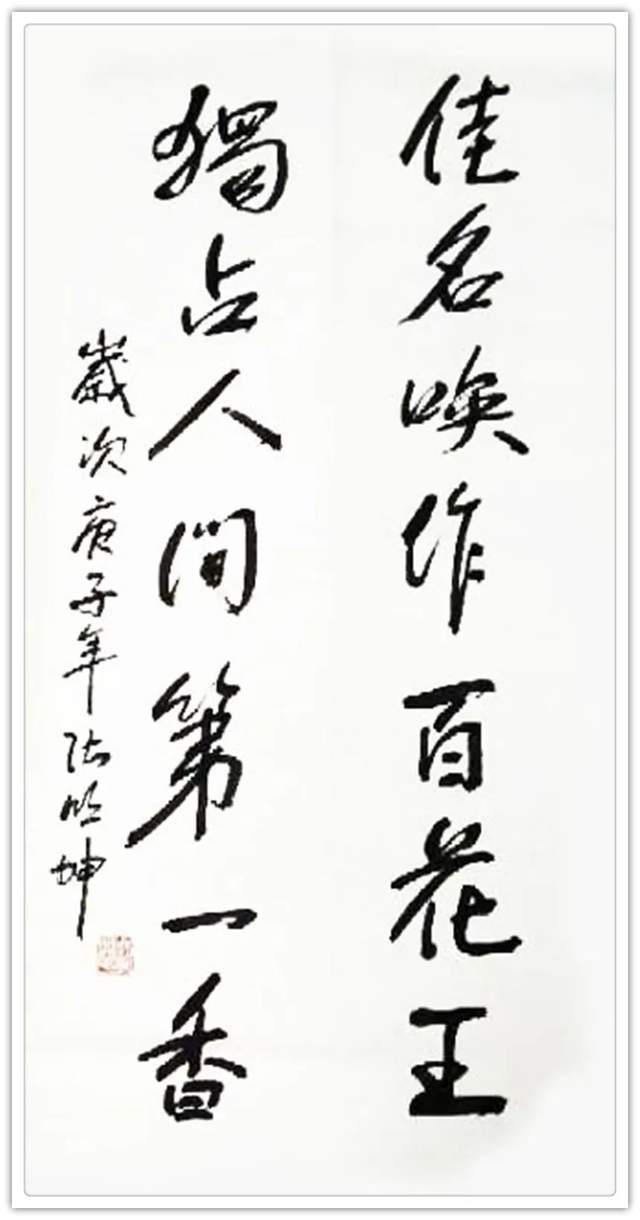 佳名唤作百花王
獨占人间第一香
歲次庚子年